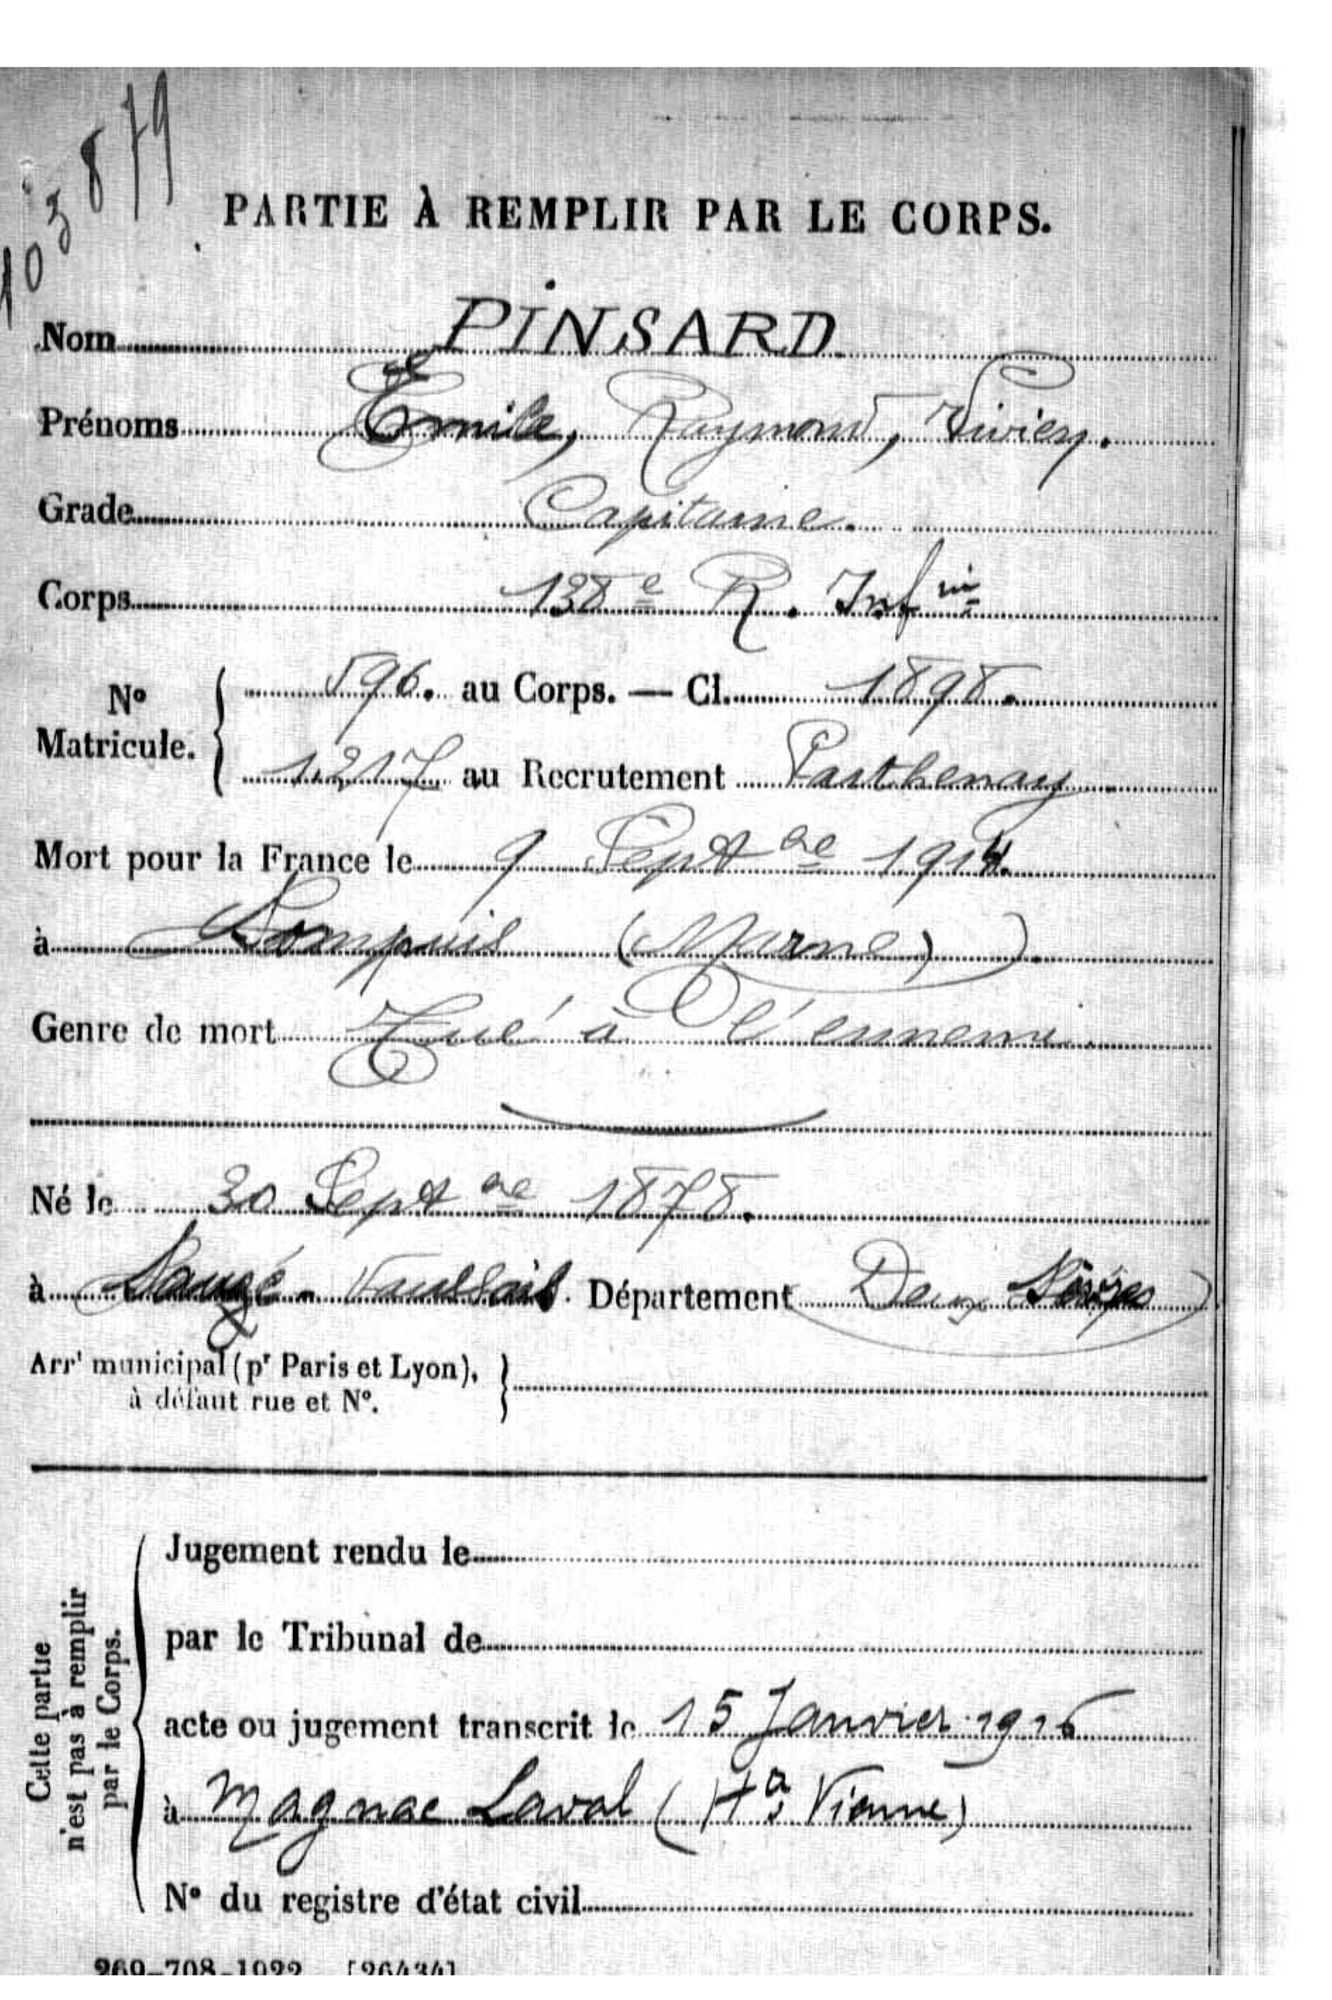 103879
PARTIE À REMPLIR PAR LE CORPS.
Nom PINSARD
Prénoms Emile, Raymond, Vivien.
Grade Capitaine.
Corps 138e R. Infie
No Matricule. 596. au Corps. — Cl. 1898.
1217 au Recrutement Parthenay
Mort pour la France le 9 Septbre 1914.
à Sompuis (Marne).
Genre de mort Tué à l'ennemi.
Né le 30 Septbre 1878.
à Sauzé-Vaussais. Département Deux Sèvres
Arrt municipal (pr Paris et Lyon),
à défaut rue et No.
Cette partie n'est pas à remplir par le Corps.
Jugement rendu le
par le Tribunal de
acte ou jugement transcrit le 15 Janvier 1916
à Magnac Laval (Hte Vienne)
No du registre d'état civil
269-708-1922 [26434]